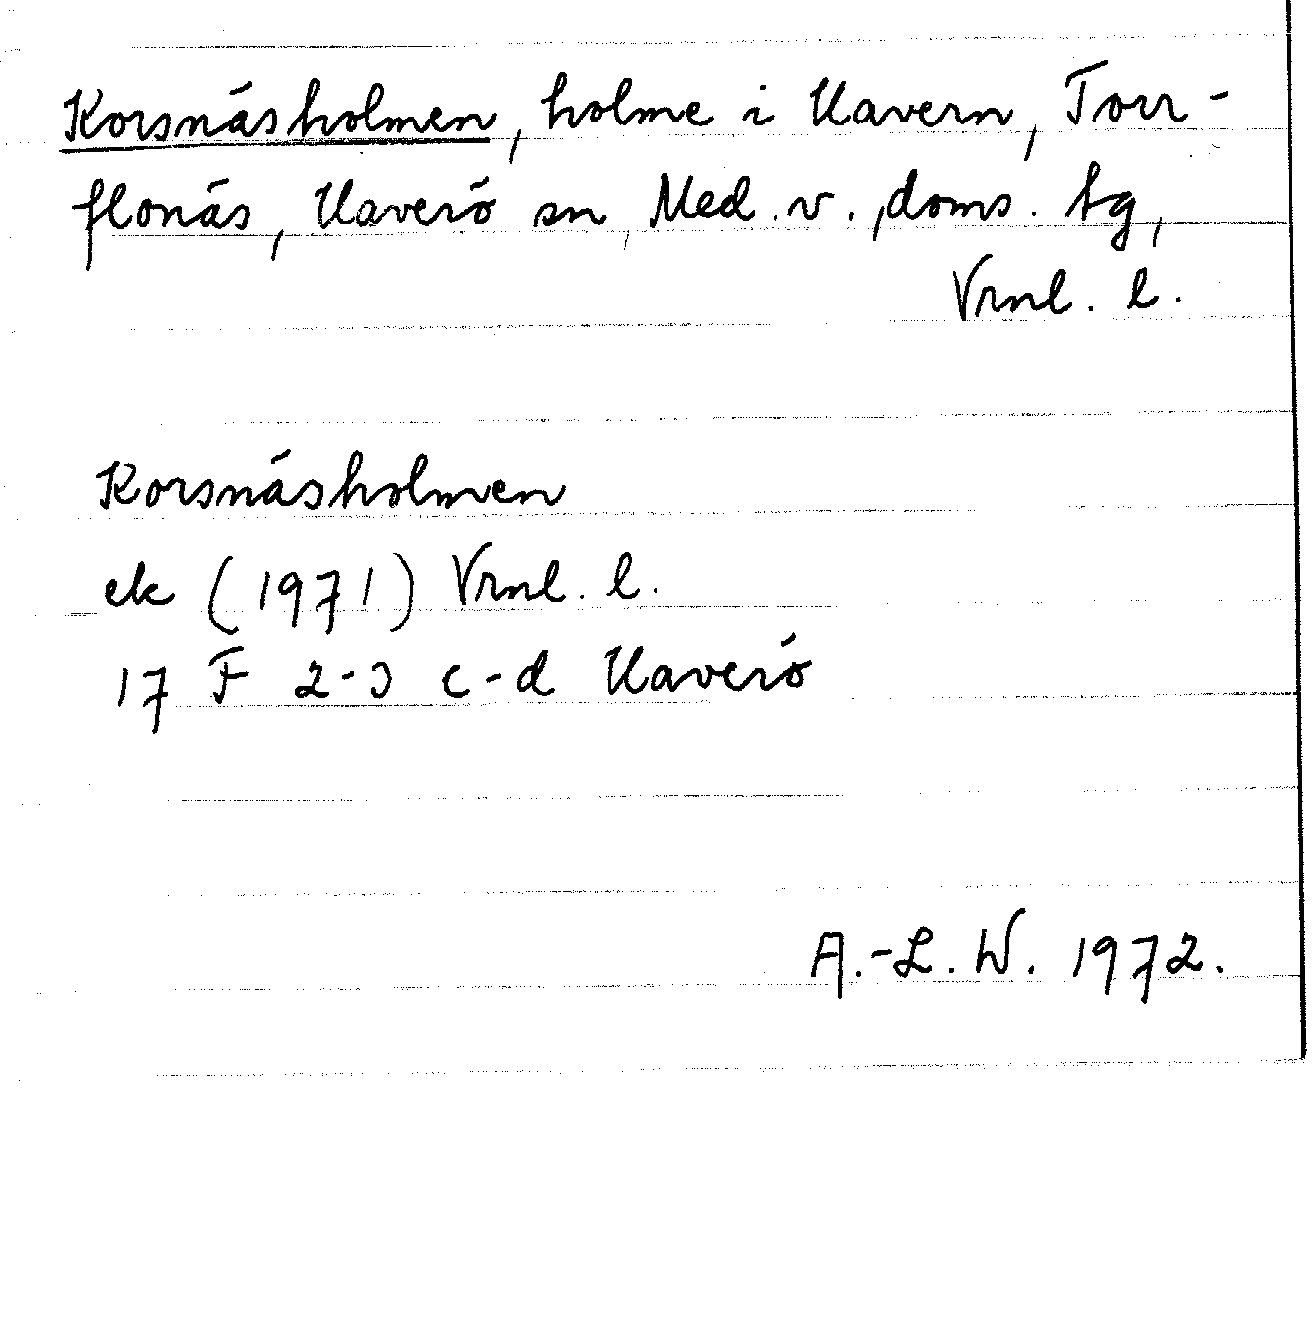 Korsnäsholmen, holme i Havern, Torr-
flonäs, Haverö sn, Med. v., doms. tg,
Vrnl. l.
Korsnäsholmen
ek (1971) Vrnl. l.
17 F 2-3 c-d Haverö
A.-L. W. 1972.